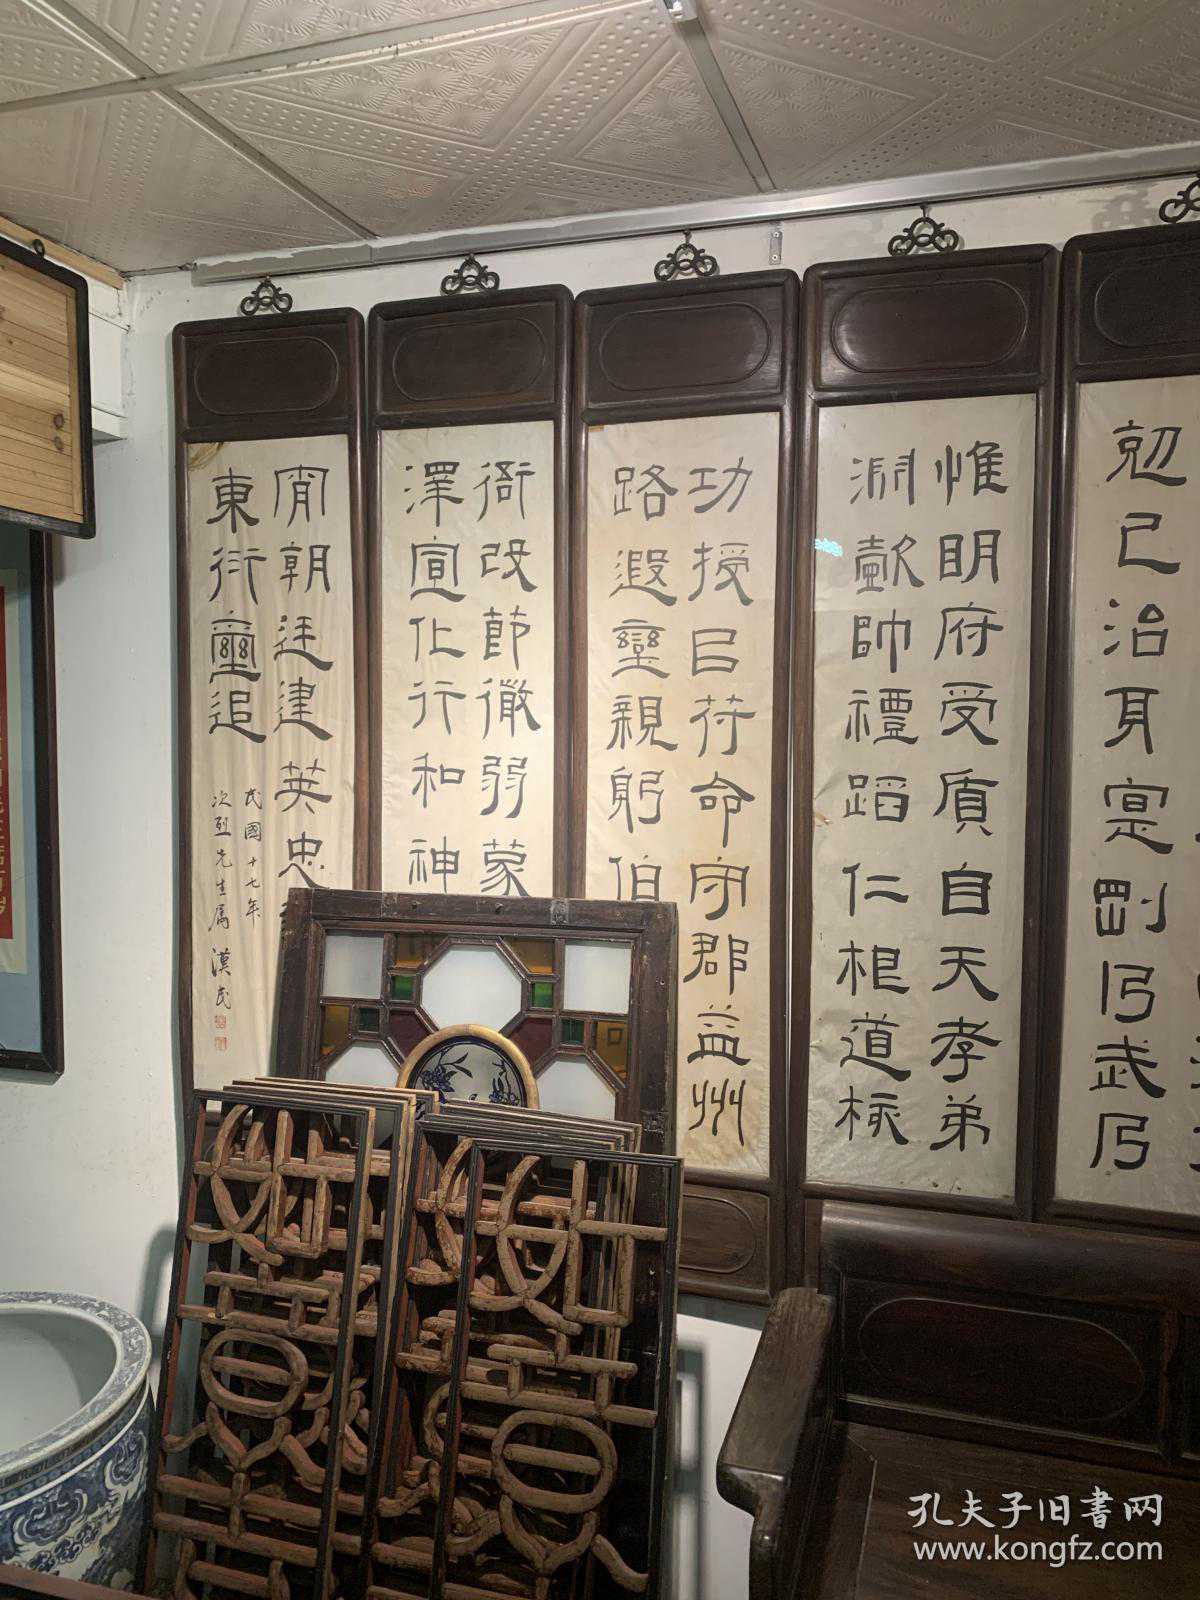 剋己治身寔剛乃武乃
惟明府受質自天孝弟
淵懿帥禮蹈仁根道核
功授官符命守郡益州
路遐攣親躬
衙改節微弱蒙
澤宣化行和神
宵朝廷建英忠
東衍疊追
民國十七年
次烈先生屬 漢民
孔夫子旧書网
www.kongfz.com